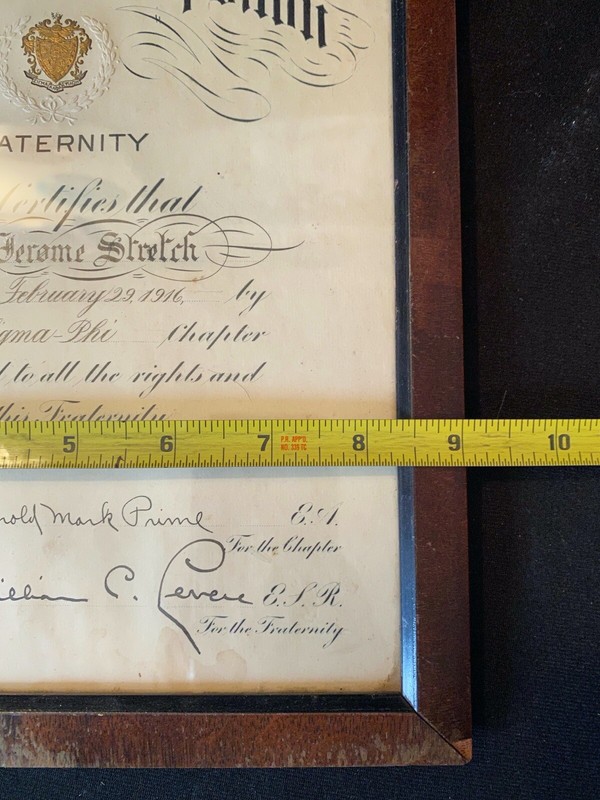 ATERNITY
Certifies that
Jerome Stretch
February 29, 1916, by
gma-Phi Chapter
to all the rights and
this Fraternity
5 6 7 P.R. APP'D. 8 9 10
nold Mark Prime E.A.
For the Chapter
illiam C. Levere E.S.R.
For the Fraternity